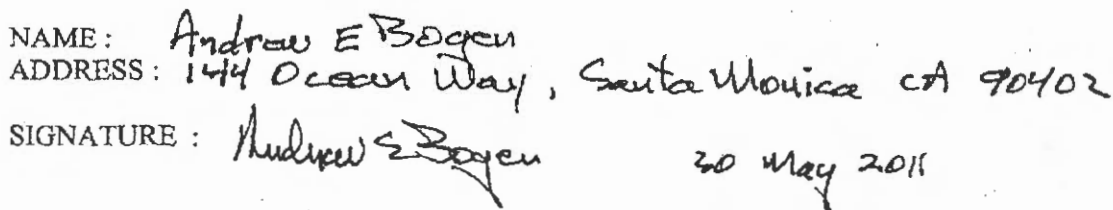 NAME: Andrew E Bogen
ADDRESS: 144 Ocean Way, Santa Monica CA 90402
SIGNATURE: Andrew E Bogen 30 May 2011